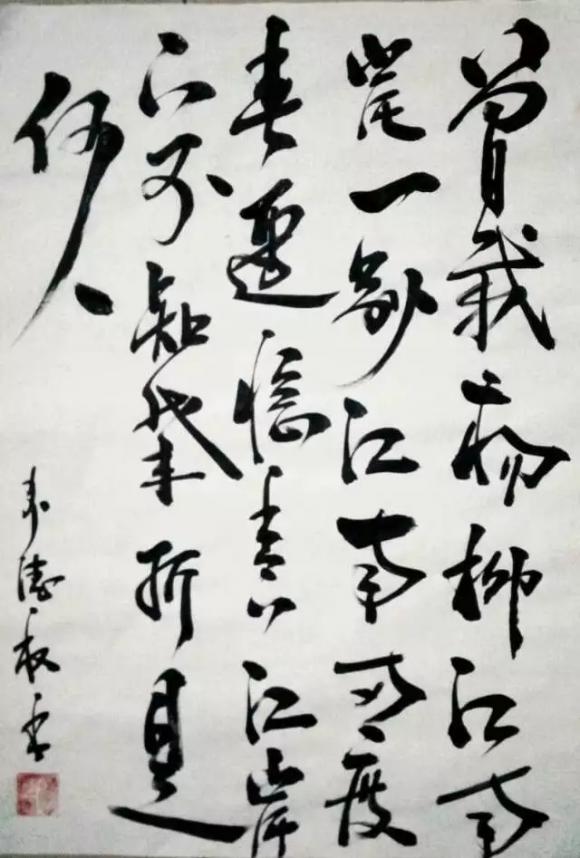 曾栽楊柳江南
岸一別江南两度
春遥憶青々江岸
上不知攀折是
何人